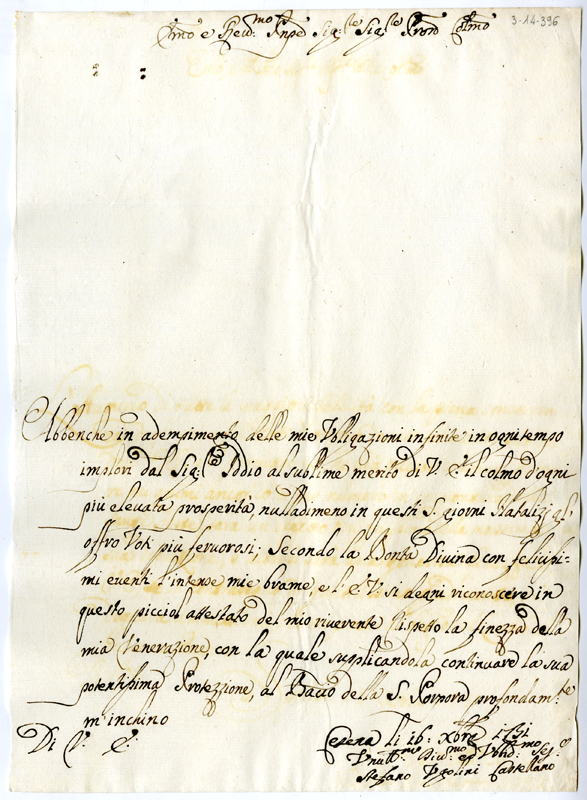 3-14-396
Emo e Reu:mo Prnpe Sig:re Sig:re Pron Colmo
Abbenche in adempimento delle mie Obligazioni infinite in ogni tempo
implori dal Sig: Iddio al sublime merito di V. E. il colmo d'ogni
più elevata prosperità, nulladimeno in questi S. giorni Natalizj gl'
offro Voti più feruorosi; Secondo la Bontà Diuina con felicissi-
mi euenti l'intense mie brame, e l'E. V. si degni riconoscere in
questo picciol attestato del mio riuerente Rispetto la finezza della
mia Venerazione, con la quale supplicandola continuare la sua
potentissima Protezzione, al Bacio della S. Porpora profondam:te
m'inchino
Di V. E.
Cesena li 16: Xbre
Stefano Vgolini Castellano